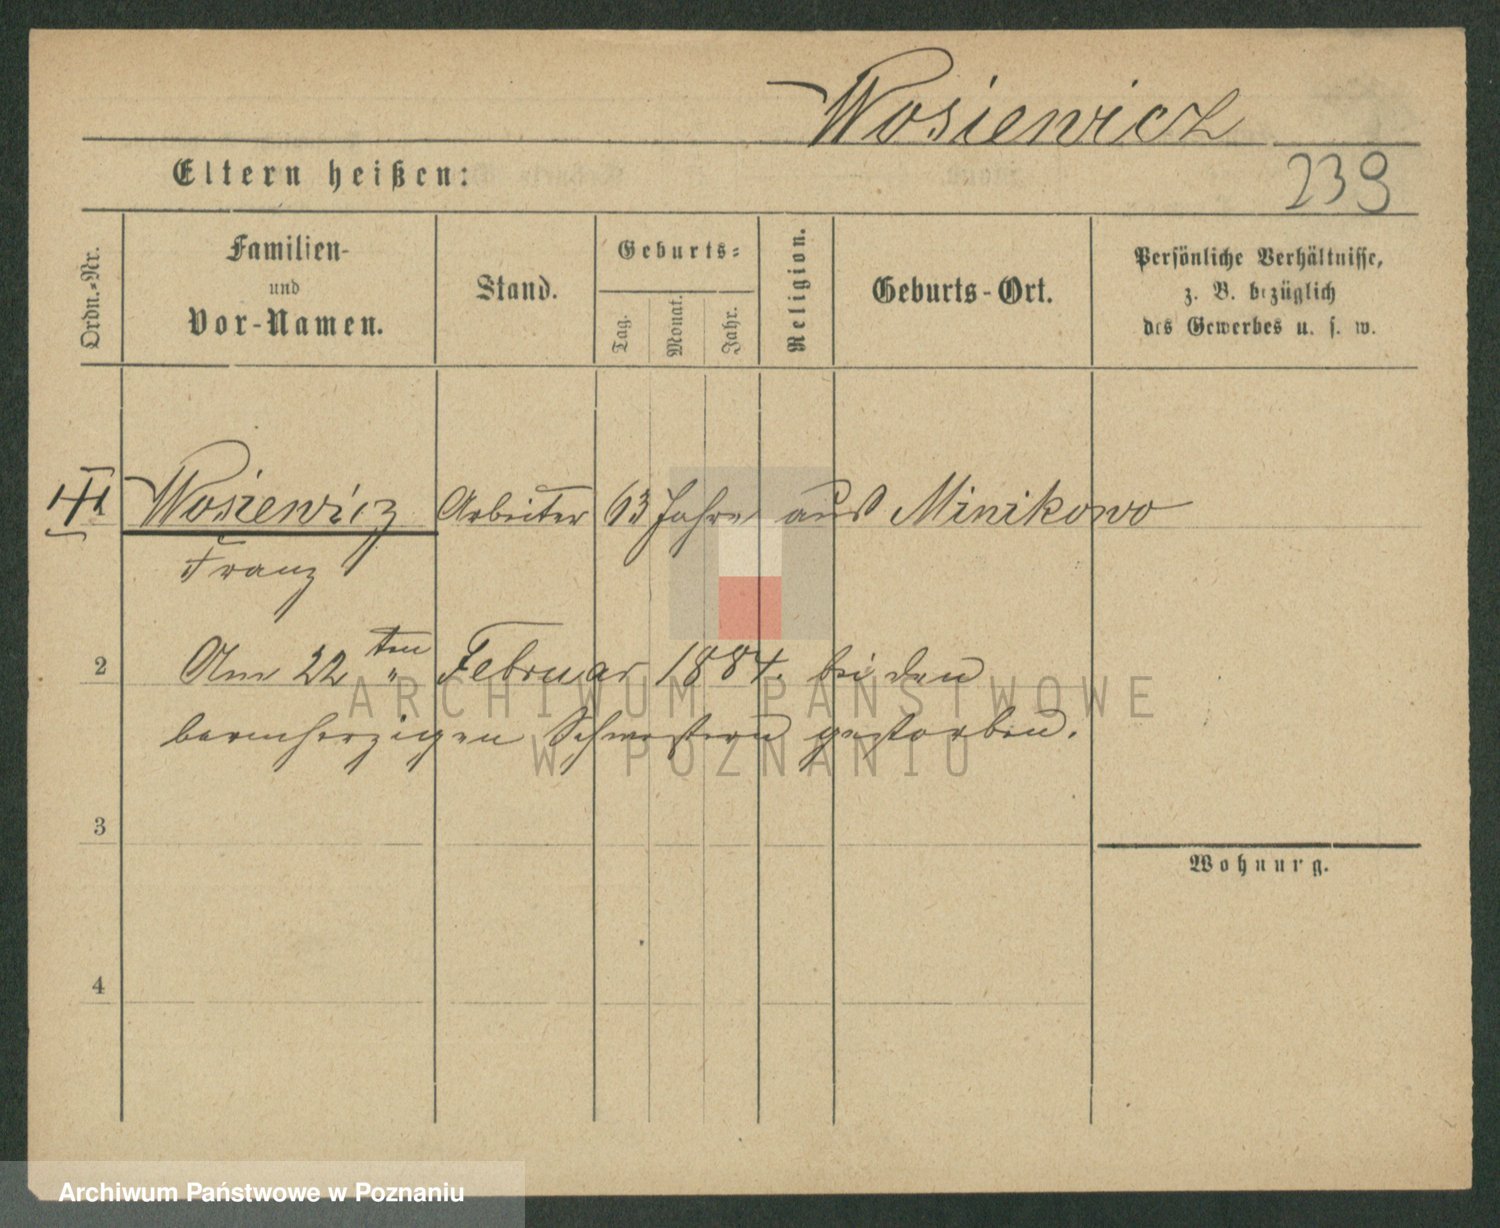 Wosiewicz
Eltern heißen:
239
Ordn.-Nr.
Familien-
und
Vor-Namen.
Stand.
Geburts-
Tag.
Monat.
Jahr.
Religion.
Geburts-Ort.
Persönliche Verhältnisse,
z. B. bezüglich
des Gewerbes u. s. w.
1 Wosiewicz Arbeiter 63 Jahre aus Minikowo
Franz
2 Am 22ten Februar 1884. bei den
barmherzigen Schwestern gestorben.
ARCHIWUM PAŃSTWOWE
W POZNANIU
3
Wohnung.
4
Archiwum Państwowe w Poznaniu